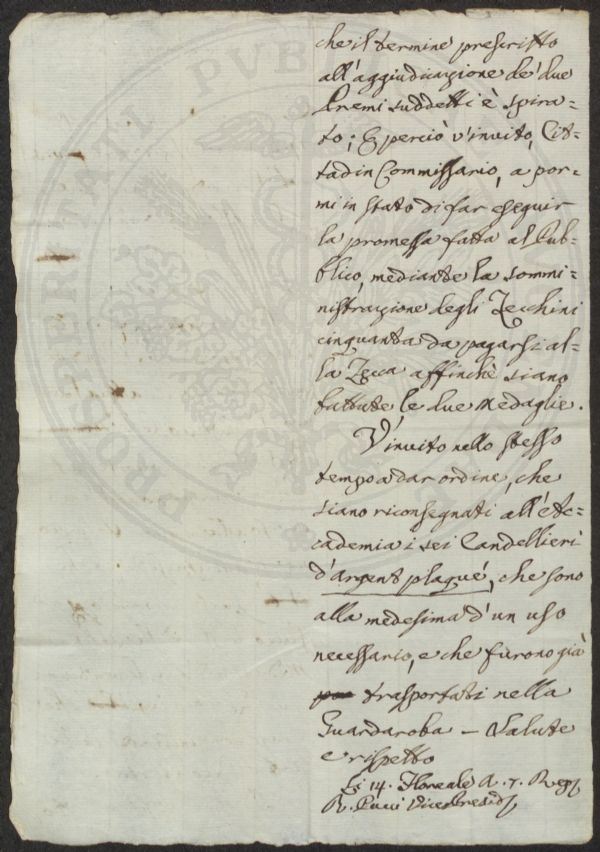 che il termine prescritto
all'aggiudicazione de' due
Premi suddetti è spira=
to; E perciò v'invito, Cit=
tadin Commissario, a por=
mi in stato di far eseguir
la promessa fatta al Pub=
blico, mediante la sommi=
nistrazione degli Zecchini
cinquanta da pagarsi al=
la Zecca affinchè siano
battute le due Medaglie.
V'invito nello stesso
tempo a dar ordine, che
siano riconsegnati all'Ac=
cademia i sei Candellieri
d'argent plaqué, che sono
alla medesima d'un uso
necessario, e che furono già
trasportati nella
Guardaroba — Salute
e rispetto
Li 14. Floreale A. 7. Rep
R. Pucci Vice Presid
PROSPERITATI PVBLI